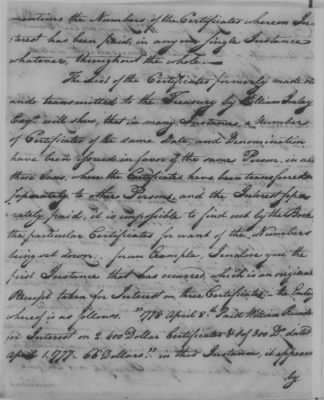 mentions the Numbers of the Certificates whereon In-
terest has been paid, in any one single Instance
whatever, throughout the whole.—
The List of the Certificates formerly made out
and transmitted to the Treasury by William Imlay
Esqr. will shew, that in many Instances, a Number
of Certificates of the same Date, and Denomination
have been issued in favor of the same Person, in all
those Cases, where the Certificates have been transferred
separately to other Persons and the Interest sepa-
rately paid, it is impossible to find out by the Books
the particular Certificates for want of the Numbers
being set down — for an Example, I enclose you the
first Instance that has occurred, which is an original
Receipt taken for Interest on three Certificates — the Entry
whereof is as follows. "1778 April 8. Paid William
for Interest on 2. 400 Dollar Certificates & 1 of 300 Ds. dated
April 1. 1777. 66 Dollars." in this Instance, it appears
by